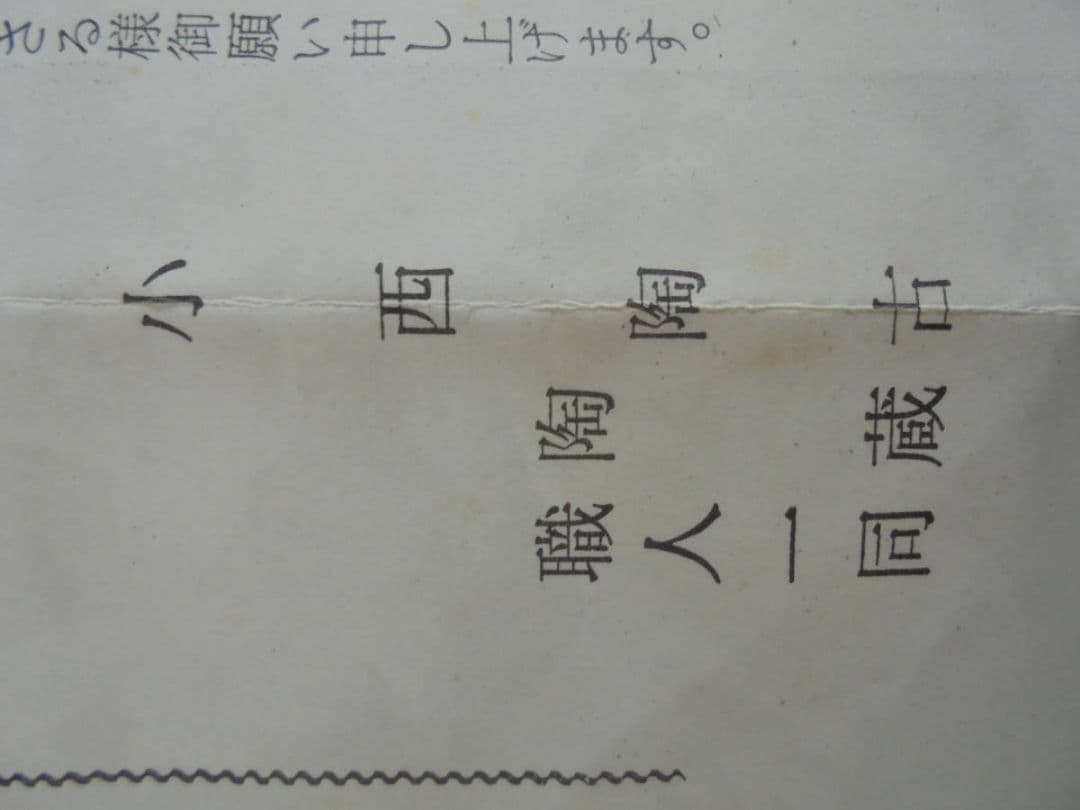 さる様御願い申し上げます。
小西陶古
陶蔵
職人一同